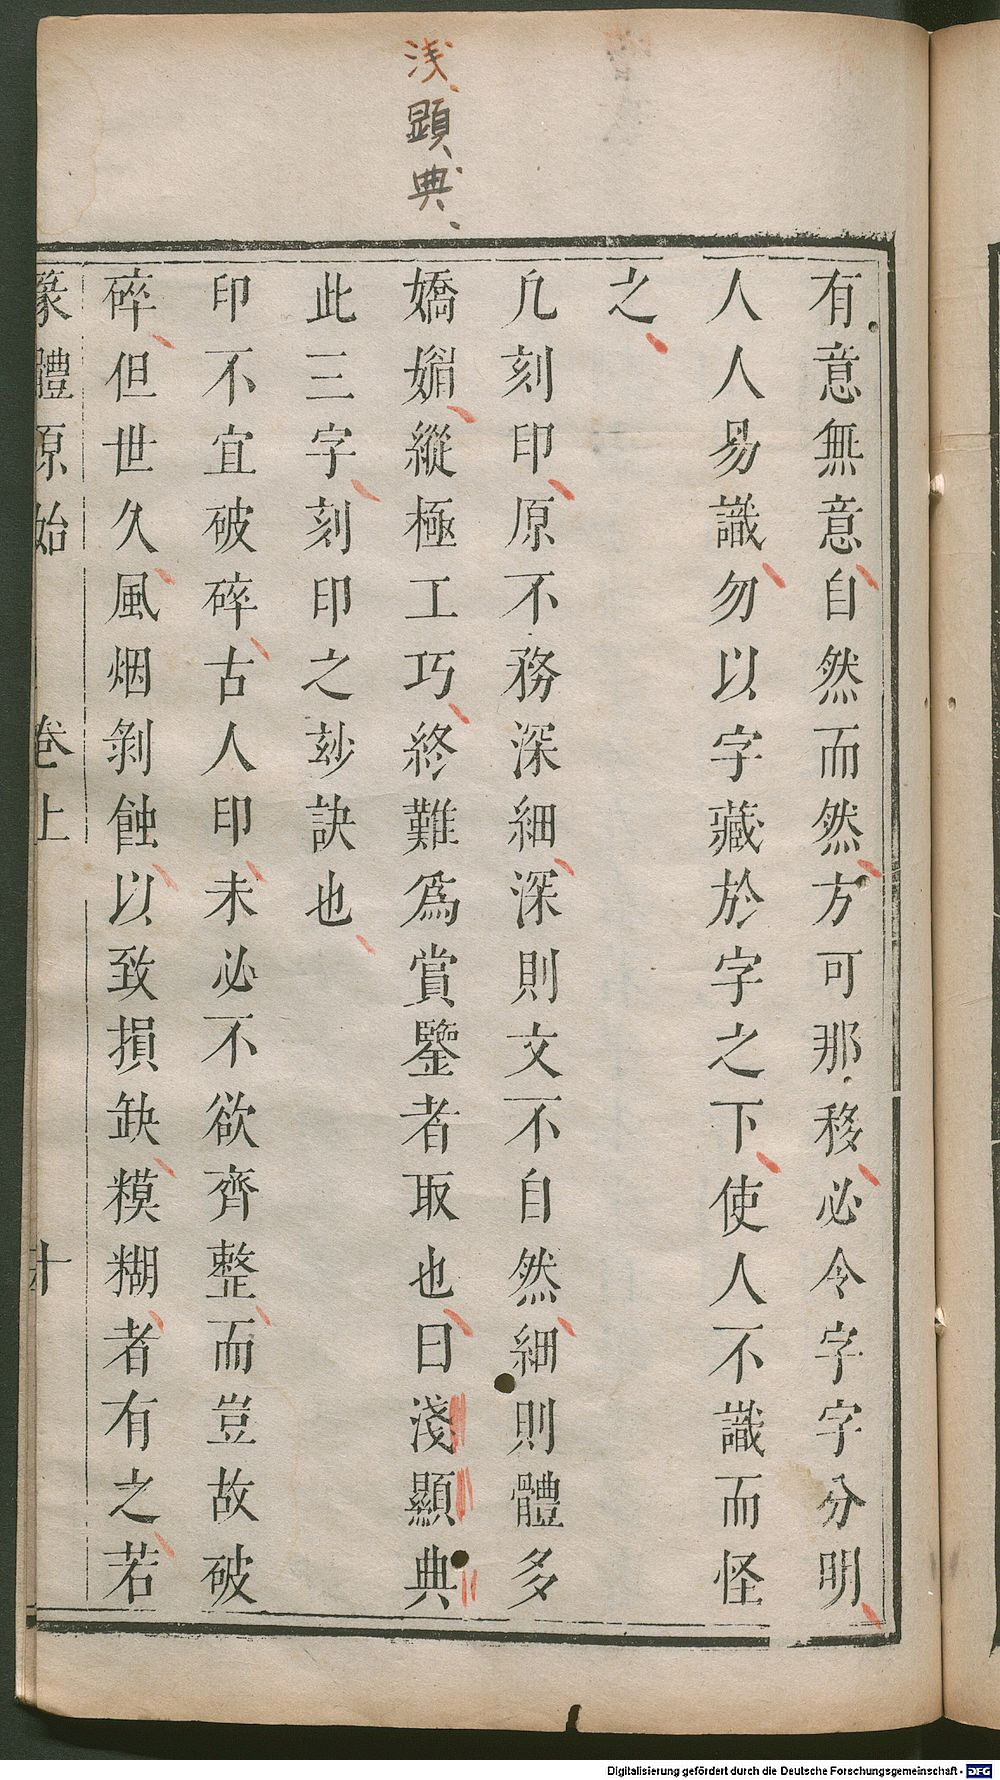 浅顕典
有意無意自然而然方可那移必令字字分明
人人易識勿以字藏於字之下使人不識而怪
之
凢刻印原不務深細深則文不自然細則體多
嬌媚縱極工巧終難爲賞鑒者取也曰淺顯典
此三字刻印之玅訣也
印不宜破碎古人印未必不欲齊整而豈故破
碎但世久風烟剝蝕以致損缺糢糊者有之若
篆體原始 卷上 十
Digitalisierung gefördert durch die Deutsche Forschungsgemeinschaft - DFG